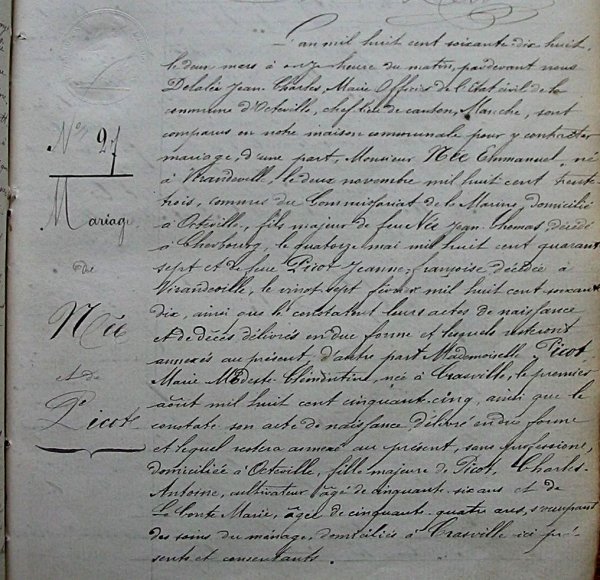 L'an mil huit cent soixante dix huit
le deux mars à onze heure du matin, pardevant nous
Delalée Jean Charles, Marie Officier de l'Etat civil de la
commune d'Octeville, chef lieu de canton, Manche, sont
comparus en notre maison communale pour y contracter
mariage, d'une part, Monsieur Née Emmanuel, né
à Virandeville, le deux novembre mil huit cent trente
trois, commis du Commissariat de la Marine, domicilié
à Octeville, fils majeur de feu Née Jean Thomas, décédé
à Cherbourg, le quatorze mai mil huit cent quarant
sept et de feue Picot Jeanne, françoise décédée à
Virandeville, le vingt sept février mil huit cent soixant
dix, ainsi que le constatent leurs actes de naissance
et de décès délivrés en due forme et lesquels resteront
annexés au présent, d'autre part Mademoiselle Picot
Marie Modeste Clémentine, née à Crasville, le premier
août mil huit cent cinquante-cinq, ainsi que le
constate son acte de naissance délivré en due forme
et lequel restera annexé au présent, sans profession,
domiciliée à Octeville, fille majeure de Picot, Charles-
Antoine, cultivateur âgé de cinquante-six ans et de
Le Conte Marie, âgée de cinquante-quatre ans, s'occupant
des soins du ménage, domiciliés à Crasville ici pré-
sents et consentants.
No. 27
Mariage
de
Née
et de
Picot